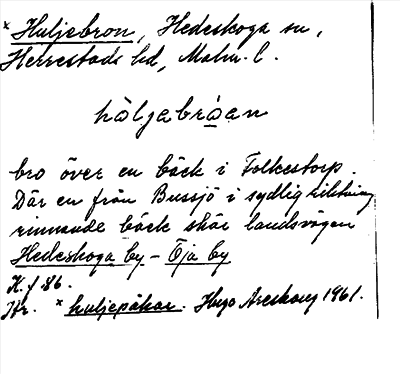 * Huljebron, Hedeskoga sn,
Herrestads hd, Malm. l.
hòljabròan
bro över en bäck i Folkestorp.
Där en från Bussjö i sydlig riktning
rinnande bäck skär landsvägen
Hedeskoga by – Öja by
K. f 86.
Jfr. * huljepåkar. Hugo Areskoug 1961.